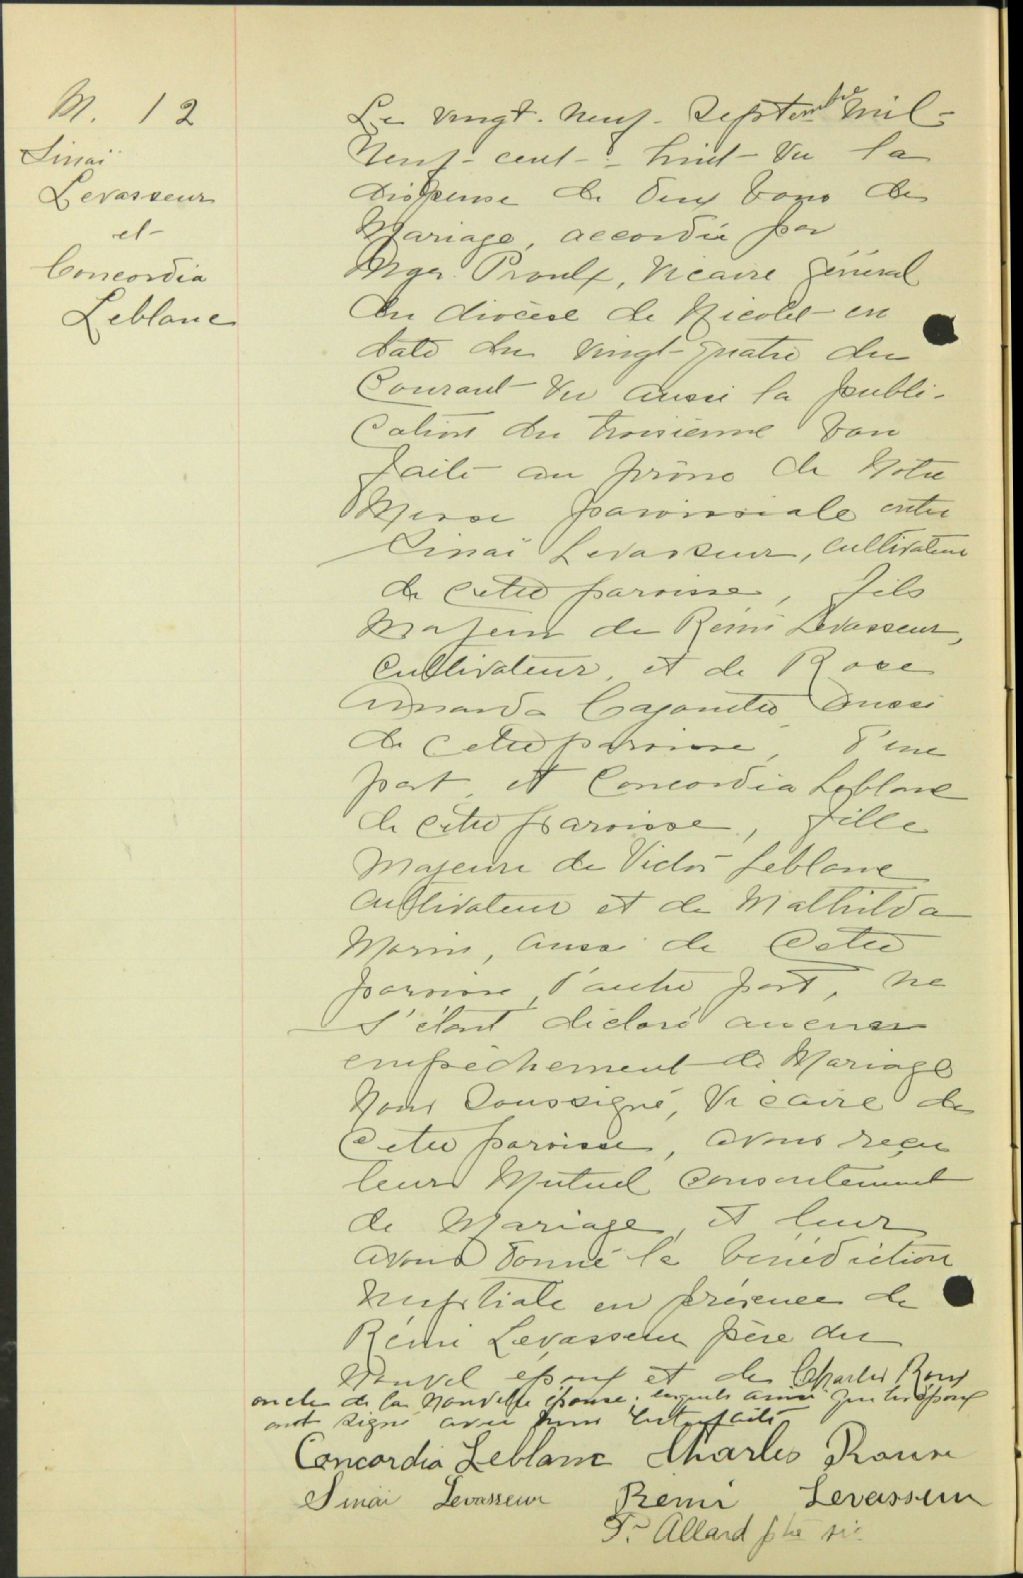 M. 12
Sinaï
Levasseur
et
Concordia
Leblanc
Le vingt-neuf Septembre mil-
neuf-cent-huit Vu la
dispense de deux bans de
Mariage, accordée par
Mgr. Proulx, Vicaire général
du diocèse de Nicolet en
date du vingt-quatre du
Courant Vu aussi la publi-
cation du troisième ban
faite au prône de Notre
Messe paroissiale entre
Sinaï Levasseur, cultivateur
de cette paroisse, fils
Majeur de Rémi Levasseur,
cultivateur, et de Rose
Amanda aussi
de cette paroisse, d'une
part, et Concordia Leblanc
de cette paroisse, fille
Majeure de Victor Leblanc
cultivateur et de Mathilda
Morin, aussi de Cette
paroisse, d'autre part, ne
s'étant déclaré aucun
empêchement de Mariage
Nous Soussigné, Vicaire de
Cette paroisse, avons reçu
leur Mutuel Consentement
de Mariage, et leur
avons donné la bénédiction
Nuptiale en présence de
Rémi Levasseur père du
Nouvel époux et de Charles Roux
oncle de la Nouvelle épouse, lesquels ainsi que les époux
ont signé avec nous lecture faite
Concordia Leblanc Charles
Sinaï Levasseur Rémi Levasseur
P. Allard ptre vic.